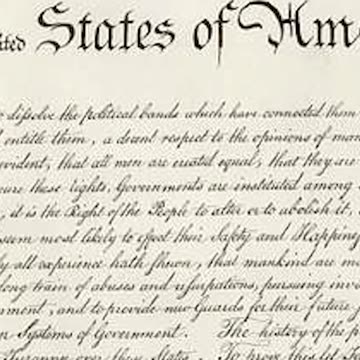 ited States of Am
dissolve the political bands which have connected them
entitle them, a decent respect to the opinions of man
evident, that all men are created equal, that they are
cure these rights, Governments are instituted among
, it is the Right of the People to alter or to abolish it,
seem most likely to effect their Safety and Happine
ly all experience hath shewn, that mankind are mo
long train of abuses and usurpations, pursuing inva
nment, and to provide new Guards for their future
n Systems of Government. The history of the p
Tyranny over these States. To prove this let